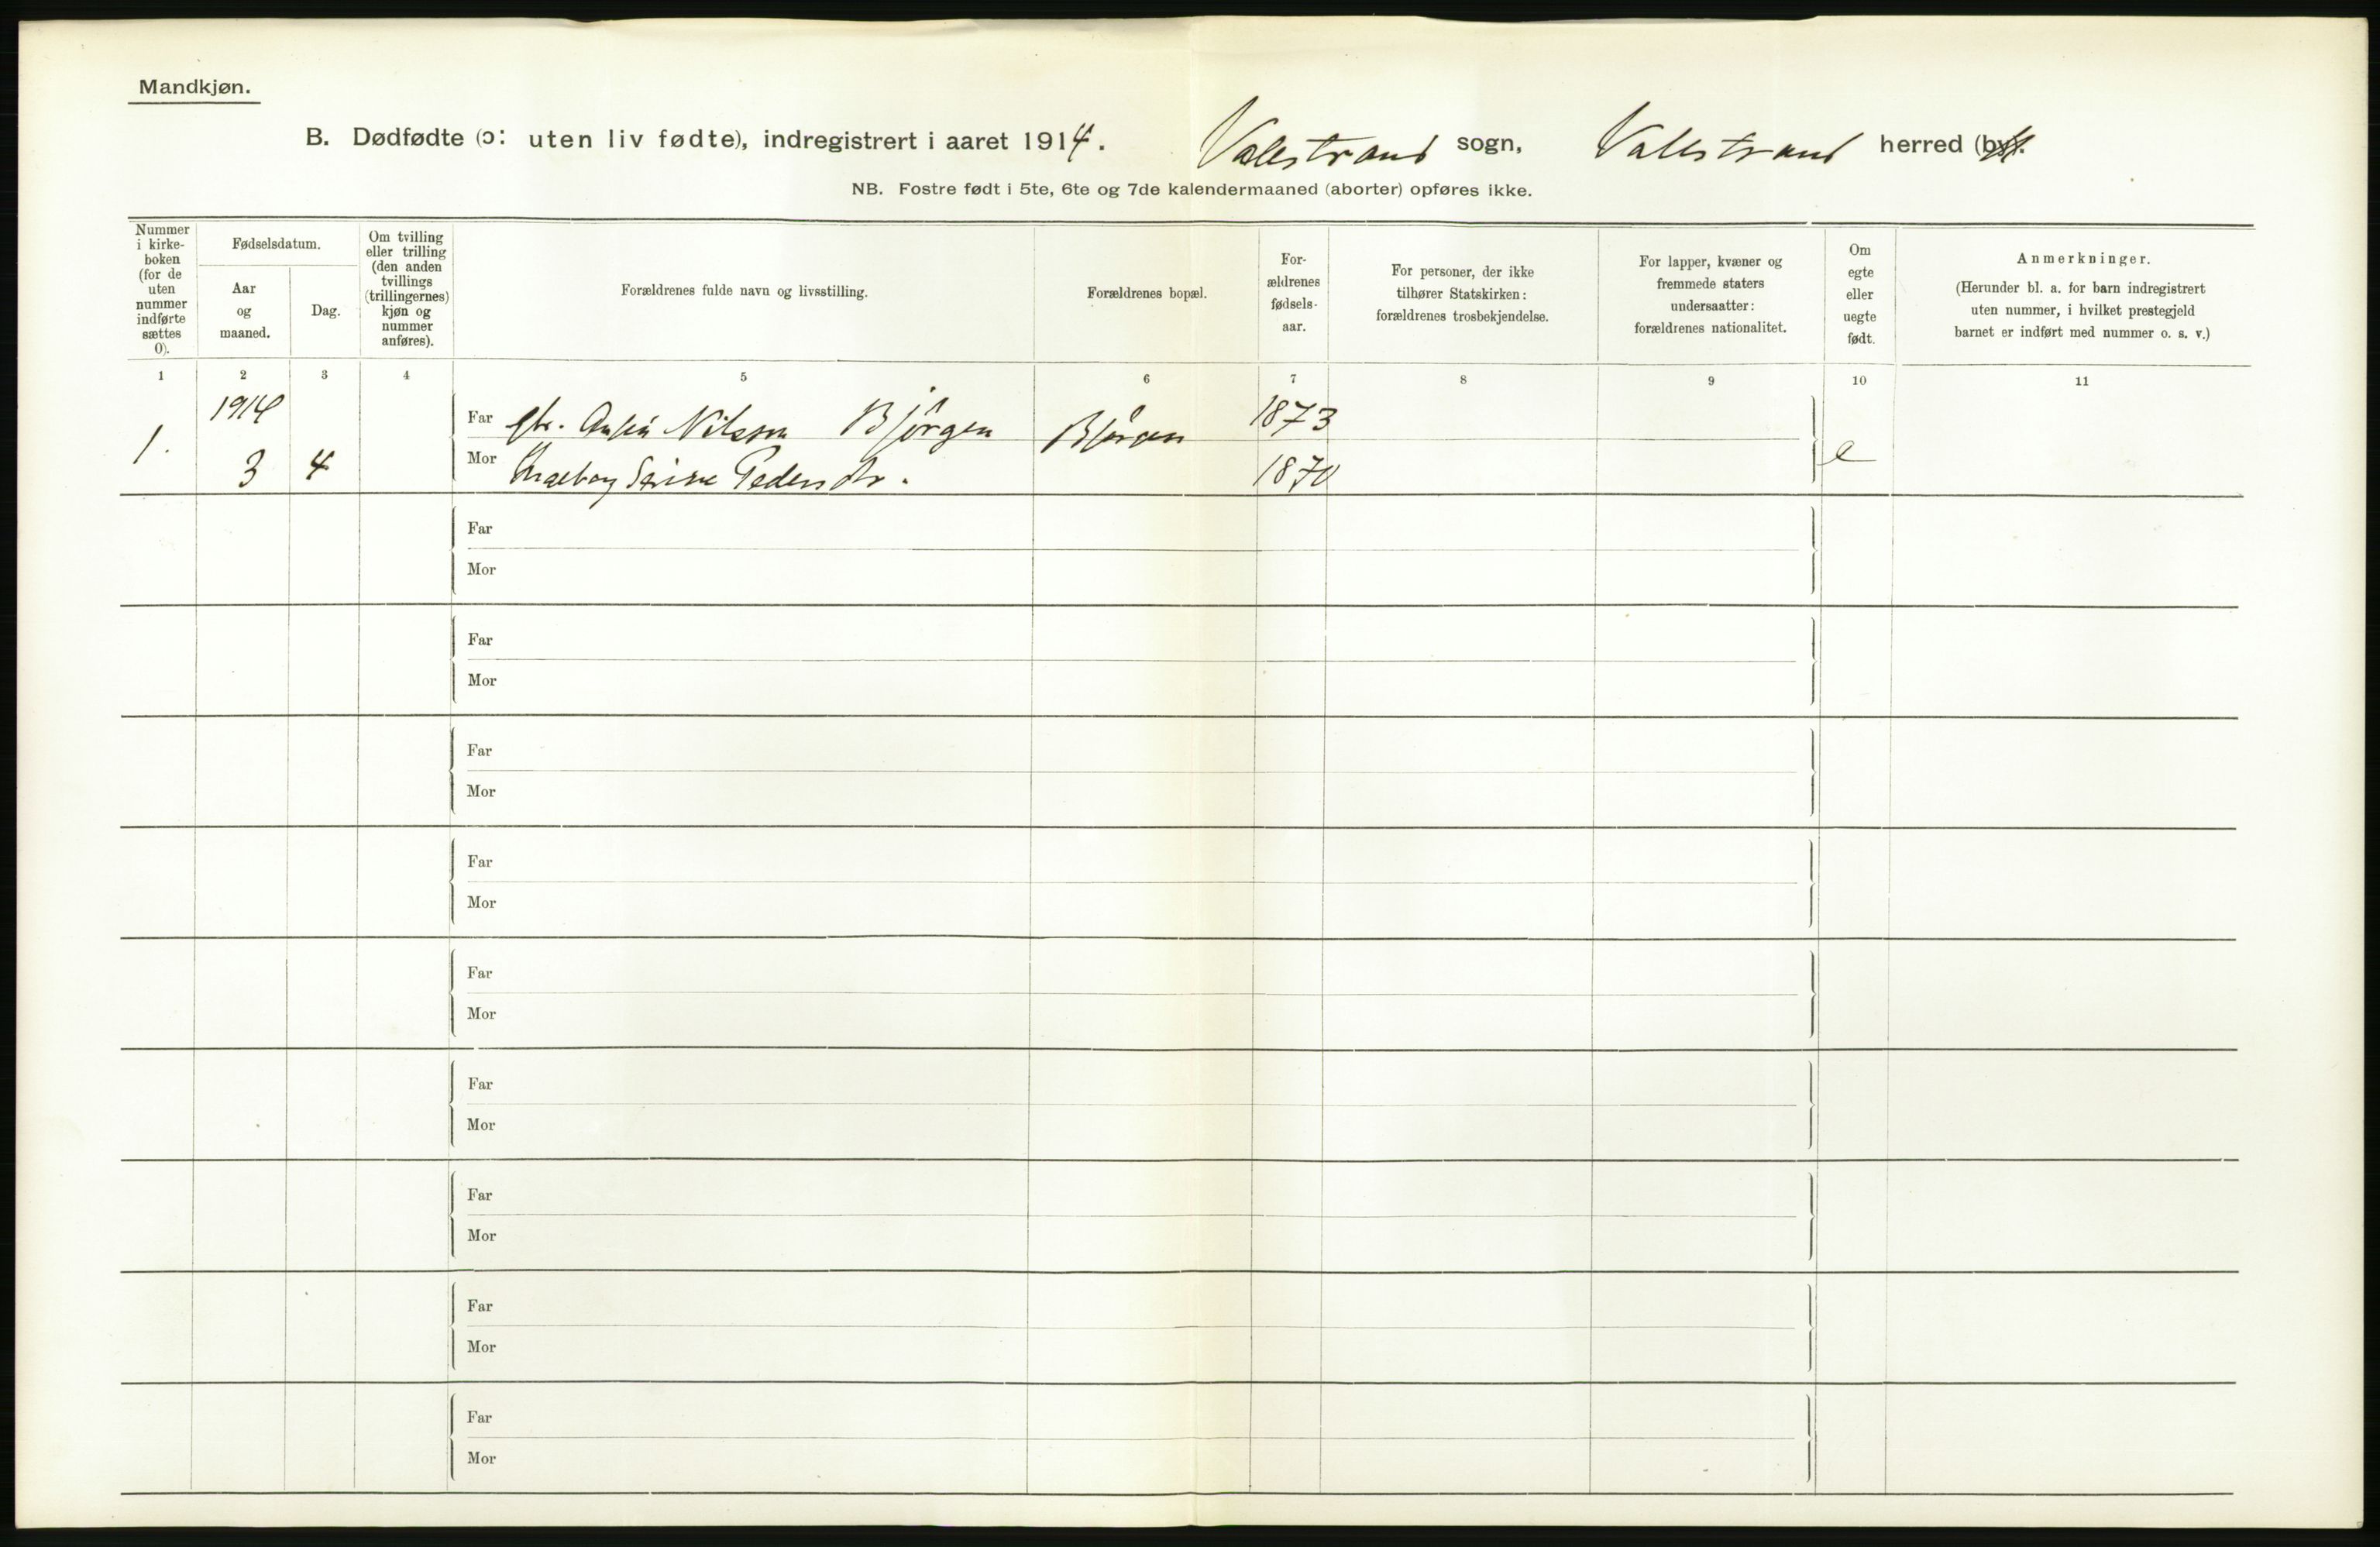 Mandkjøn.
B. Dødfødte (ɔ: uten liv fødte), indregistrert i aaret 1914. Valestrand sogn, Valestrand herred (by).
NB. Fostre født i 5te, 6te og 7de kalendermaaned (aborter) opføres ikke.
Nummer
i kirke-
boken
(for de
uten
nummer
indførte
sættes
0).
Fødselsdatum.
Aar
og
maaned.
Dag.
Om tvilling
eller trilling
(den anden
tvillings
(trillingernes)
kjøn og
nummer
anføres).
Forældrenes fulde navn og livsstilling.
Forældrenes bopæl.
For-
ældrenes
fødsels-
aar.
For personer, der ikke
tilhører Statskirken:
forældrenes trosbekjendelse.
For lapper, kvæner og
fremmede staters
undersaatter:
forældrenes nationalitet.
Om
egte
eller
uegte
født.
Anmerkninger.
(Herunder bl. a. for barn indregistrert
uten nummer, i hvilket prestegjeld
barnet er indført med nummer o. s. v.)
1 2 3 4 5 6 7 8 9 10 11
1914
Far Nilsson Bjørgen Bjørgen 1873
1.
3 4 Mor Ingeborg Pedersdtr. 1870 e
Far
Mor
Far
Mor
Far
Mor
Far
Mor
Far
Mor
Far
Mor
Far
Mor
Far
Mor
Far
Mor